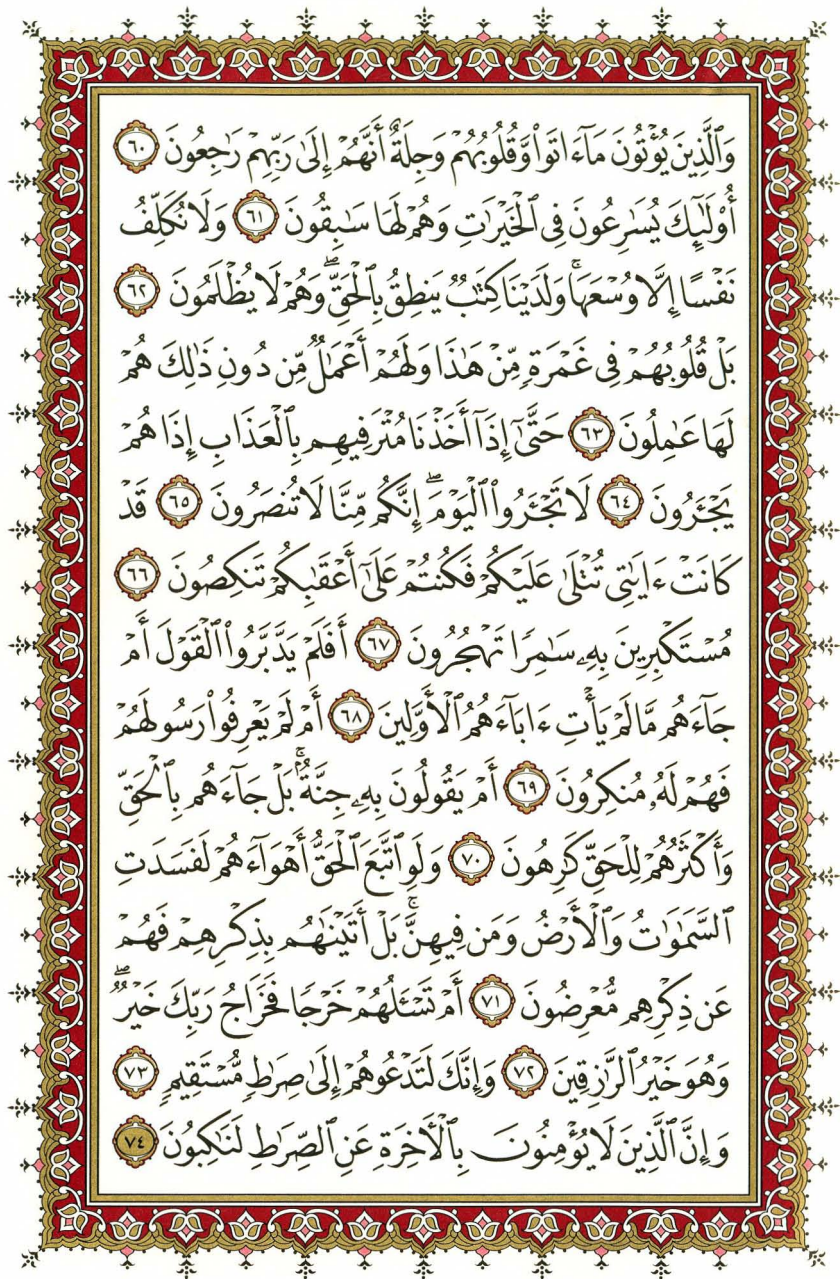 وَٱلَّذِينَ يُؤْتُونَ مَآ ءَاتَوا۟ وَّقُلُوبُهُمْ وَجِلَةٌ أَنَّهُمْ إِلَىٰ رَبِّهِمْ رَٰجِعُونَ ٦٠
أُو۟لَٰٓئِكَ يُسَٰرِعُونَ فِى ٱلْخَيْرَٰتِ وَهُمْ لَهَا سَٰبِقُونَ ٦١ وَلَا نُكَلِّفُ
نَفْسًا إِلَّا وُسْعَهَا ۚ وَلَدَيْنَا كِتَٰبٌ يَنطِقُ بِٱلْحَقِّ ۖ وَهُمْ لَا يُظْلَمُونَ ٦٢
بَلْ قُلُوبُهُمْ فِى غَمْرَةٍ مِّنْ هَٰذَا وَلَهُمْ أَعْمَٰلٌ مِّن دُونِ ذَٰلِكَ هُمْ
لَهَا عَٰمِلُونَ ٦٣ حَتَّىٰٓ إِذَآ أَخَذْنَا مُتْرَفِيهِم بِٱلْعَذَابِ إِذَا هُمْ
يَجْـَٔرُونَ ٦٤ لَا تَجْـَٔرُوا۟ ٱلْيَوْمَ ۖ إِنَّكُم مِّنَّا لَا تُنصَرُونَ ٦٥ قَدْ
كَانَتْ ءَايَٰتِى تُتْلَىٰ عَلَيْكُمْ فَكُنتُمْ عَلَىٰٓ أَعْقَٰبِكُمْ تَنكِصُونَ ٦٦
مُسْتَكْبِرِينَ بِهِۦ سَٰمِرًا تَهْجُرُونَ ٦٧ أَفَلَمْ يَدَّبَّرُوا۟ ٱلْقَوْلَ أَمْ
جَآءَهُم مَّا لَمْ يَأْتِ ءَابَآءَهُمُ ٱلْأَوَّلِينَ ٦٨ أَمْ لَمْ يَعْرِفُوا۟ رَسُولَهُمْ
فَهُمْ لَهُۥ مُنكِرُونَ ٦٩ أَمْ يَقُولُونَ بِهِۦ جِنَّةٌۢ ۚ بَلْ جَآءَهُم بِٱلْحَقِّ
وَأَكْثَرُهُمْ لِلْحَقِّ كَٰرِهُونَ ٧٠ وَلَوِ ٱتَّبَعَ ٱلْحَقُّ أَهْوَآءَهُمْ لَفَسَدَتِ
ٱلسَّمَٰوَٰتُ وَٱلْأَرْضُ وَمَن فِيهِنَّ ۚ بَلْ أَتَيْنَٰهُم بِذِكْرِهِمْ فَهُمْ
عَن ذِكْرِهِم مُّعْرِضُونَ ٧١ أَمْ تَسْـَٔلُهُمْ خَرْجًا فَخَرَاجُ رَبِّكَ خَيْرٌ ۖ
وَهُوَ خَيْرُ ٱلرَّٰزِقِينَ ٧٢ وَإِنَّكَ لَتَدْعُوهُمْ إِلَىٰ صِرَٰطٍ مُّسْتَقِيمٍ ٧٣
وَإِنَّ ٱلَّذِينَ لَا يُؤْمِنُونَ بِٱلْءَاخِرَةِ عَنِ ٱلصِّرَٰطِ لَنَٰكِبُونَ ٧٤